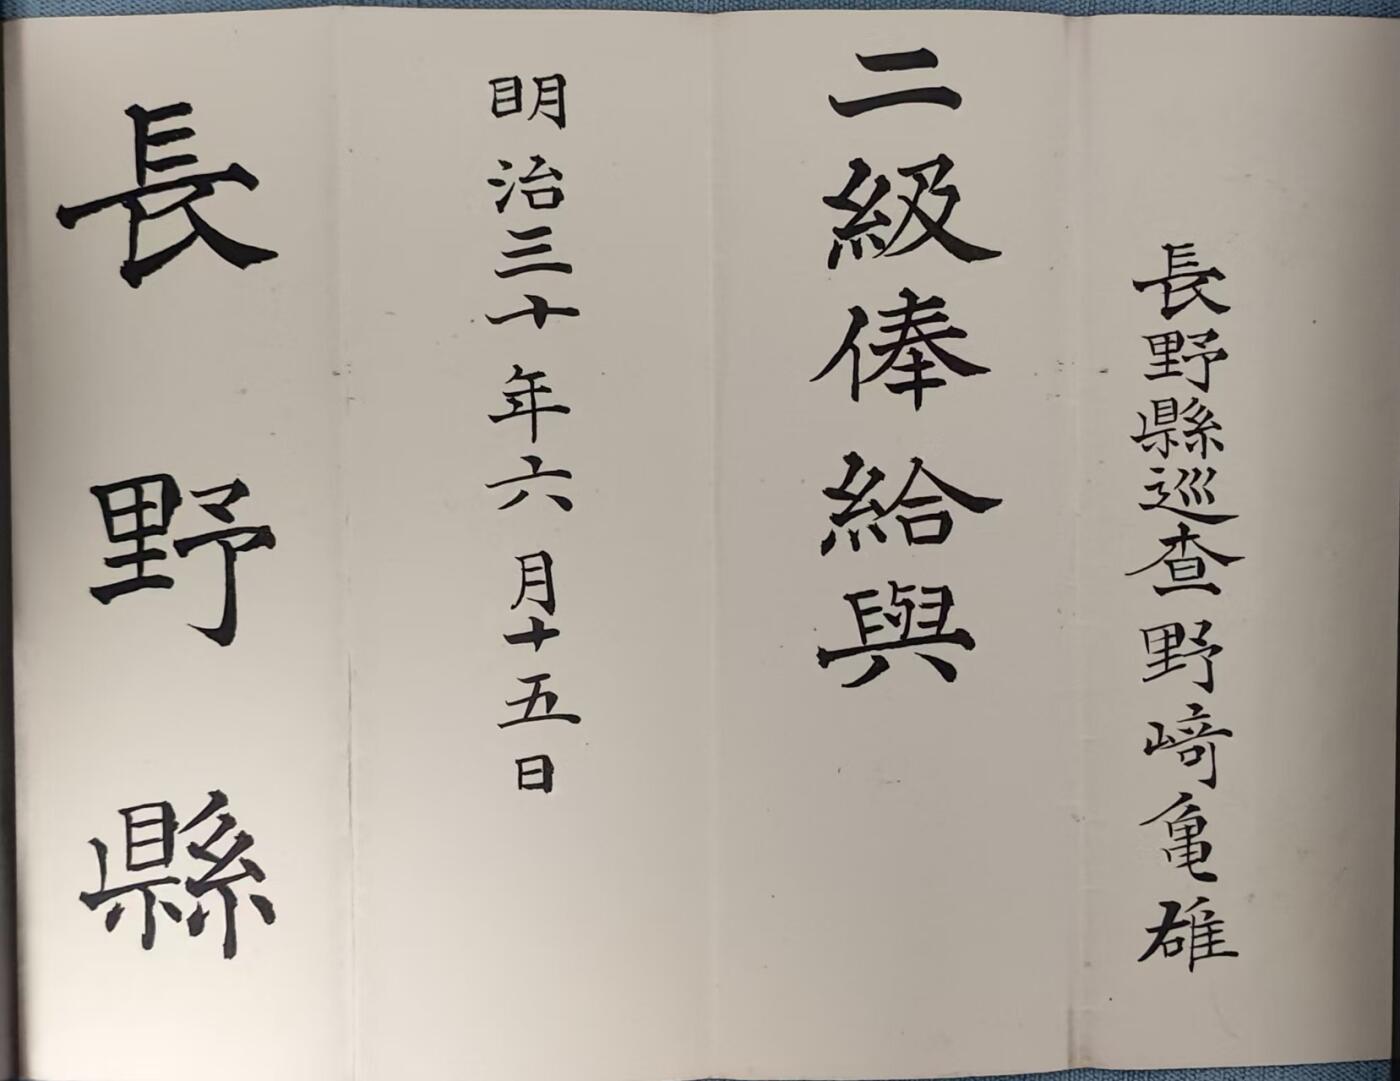 長野縣巡查野﨑亀雄
二級俸給與
明治三十年六月十五日
長野縣